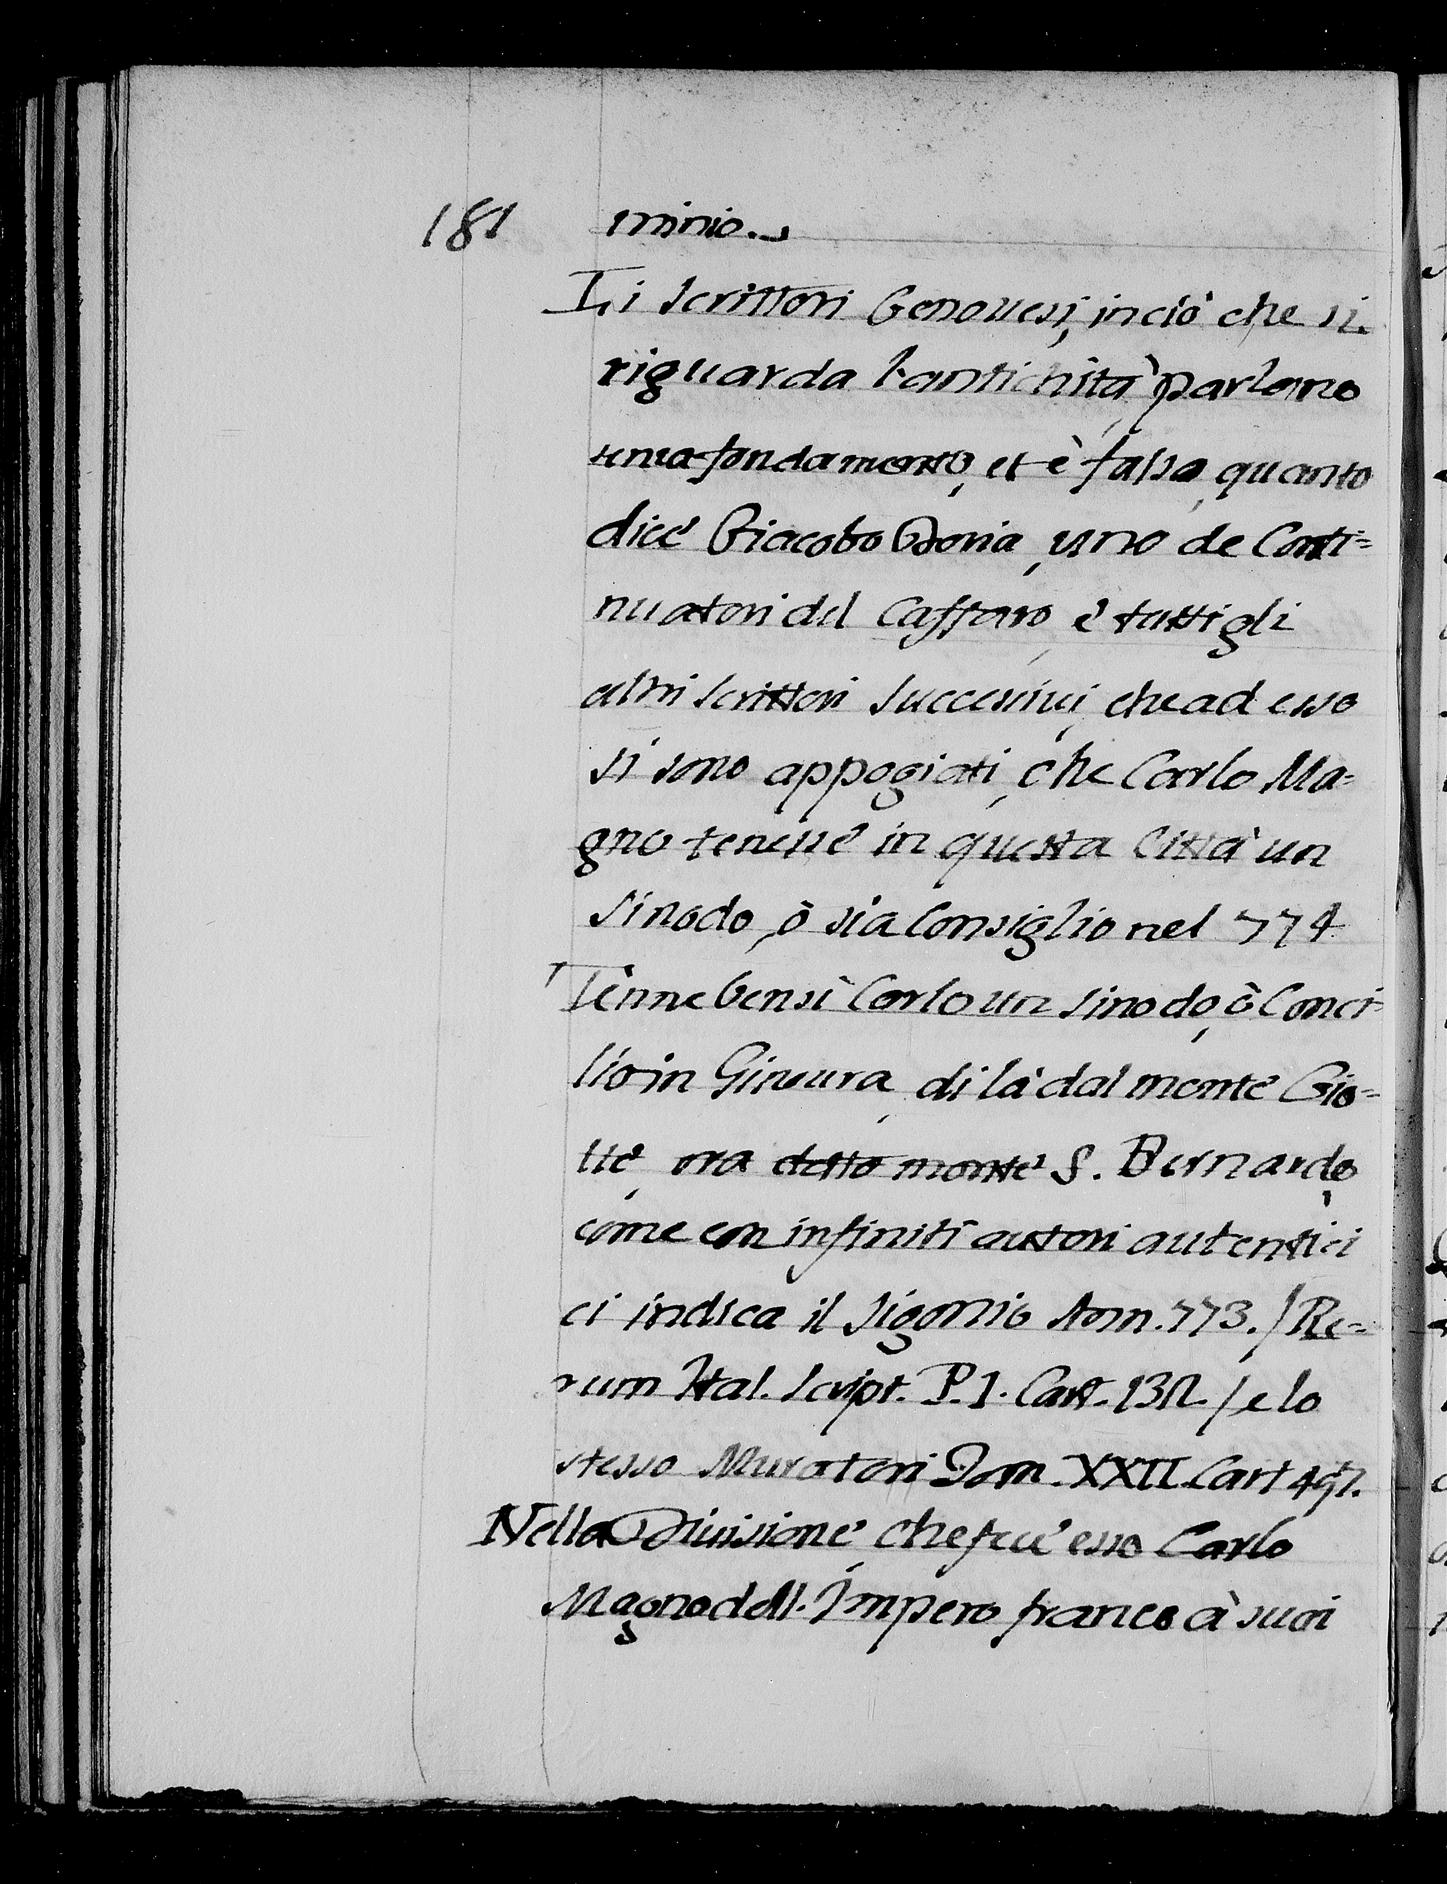 181 minio.
Li Scrittori Genovesi, in ciò che si
riguarda l'antichità, parlano
senza fondamento, et è falso, quanto
dice Giacobo Doria, uno de Conti=
nuatori del Caffaro, è tutti gli
altri Scrittori Successivi, che ad esso
si sono appogiati, che Carlo Ma=
gno tenesse in questa Città un
Sinodo, ò sia Consiglio nel 774
Tenne bensì Carlo un Sinodo, ò Conci=
lio in Ginevra, di là dal monte Gio=
ve, ora detto monte S. Bernardo,
come con infiniti autori autentici
ci indica il Sigonio Ann. 773. / Re=
rum Ital. Script. P. I. Cart. 132 / e lo
stesso Muratori Tom. XXII Cart 497.
Nella Divisione, che fece esso Carlo
Magno dell'Impero franco à suoi